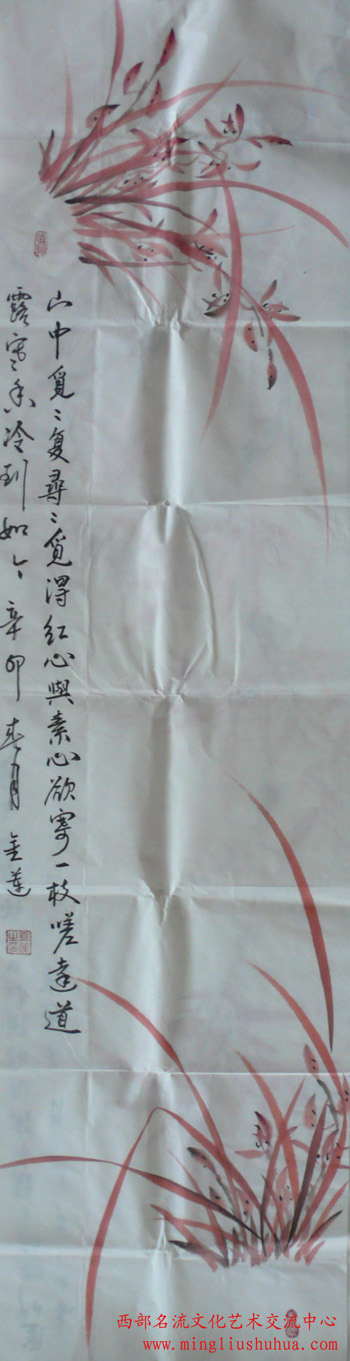 山中覓〻复尋〻覓得红心與素心欲寄一枝嗟遠道
露寒香冷到如今 辛卯春月 金莲
西部名流文化艺术交流中心
www.mingliushuhua.com